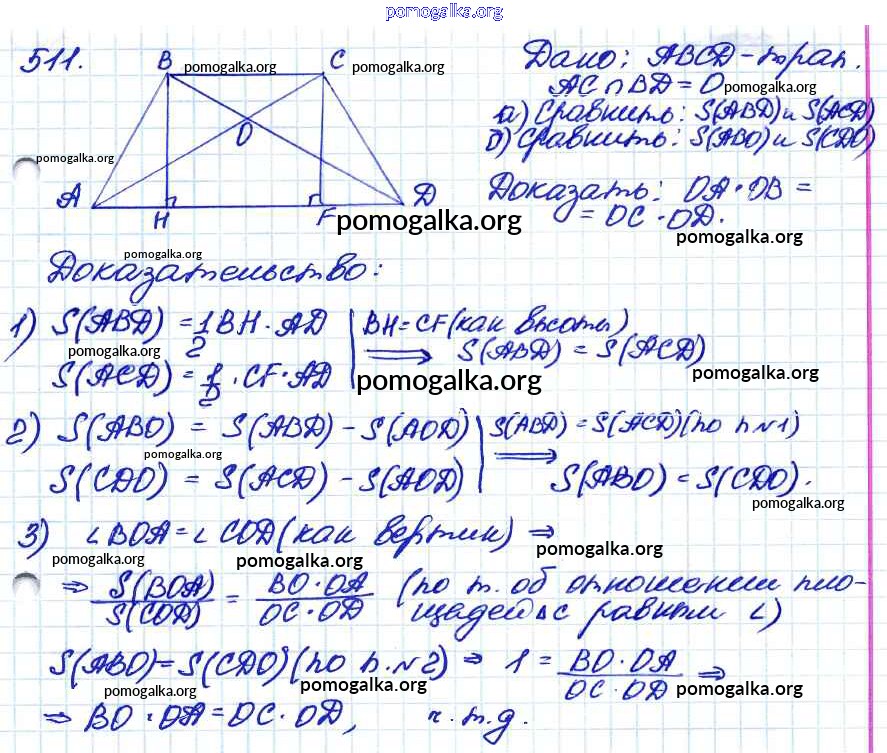 pomogalka.org
511.
B pomogalka.org C pomogalka.org
O
pomogalka.org
A H F D
pomogalka.org
Дано: ABCD - трап.
AC ∩ BD = O pomogalka.org
а) Сравнить: S(ABD) и S(ACD)
б) Сравнить: S(ABO) и S(CDO)
Доказать: OA · OB =
= OC · OD.
pomogalka.org
pomogalka.org
Доказательство:
1) S(ABD) = 1/2 BH · AD | BH = CF (как высоты)
pomogalka.org ⟹ S(ABD) = S(ACD)
S(ACD) = 1/2 · CF · AD pomogalka.org pomogalka.org
2) S(ABO) = S(ABD) - S(AOD) | S(ABD) = S(ACD) (по п.№1)
pomogalka.org ⟹
S(CDO) = S(ACD) - S(AOD) S(ABO) = S(CDO).
pomogalka.org
3) ∠BOA = ∠COD (как вертик) ⇒
pomogalka.org pomogalka.org pomogalka.org
⇒ S(BOA)/S(COD) = BO · OA/OC · OD (по т. об отношении пло-
щадей ∆ с равным ∠)
S(ABO) = S(CDO) (по п.№2) ⇒ 1 = BO · OA/OC · OD ⇒
pomogalka.org pomogalka.org pomogalka.org
⇒ BO · OA = OC · OD, ч.т.д.
pomogalka.org